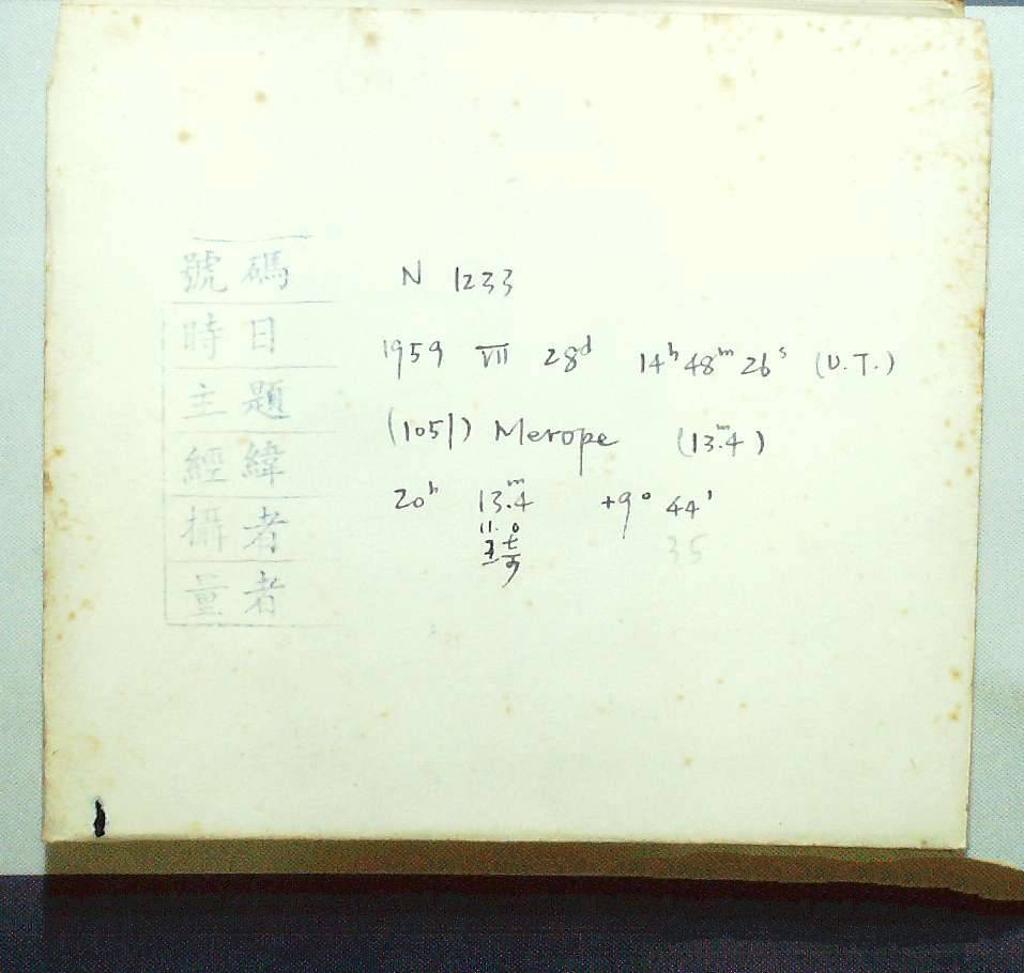 號碼 N 1233
時日 1959 VII 28ᵈ 14ʰ 48ᵐ 26ˢ (U.T.)
主題 (1051) Merope (13ᵐ.4)
經緯 20ʰ 13ᵐ.4 +9° 44'
11.0 35
攝者
量者